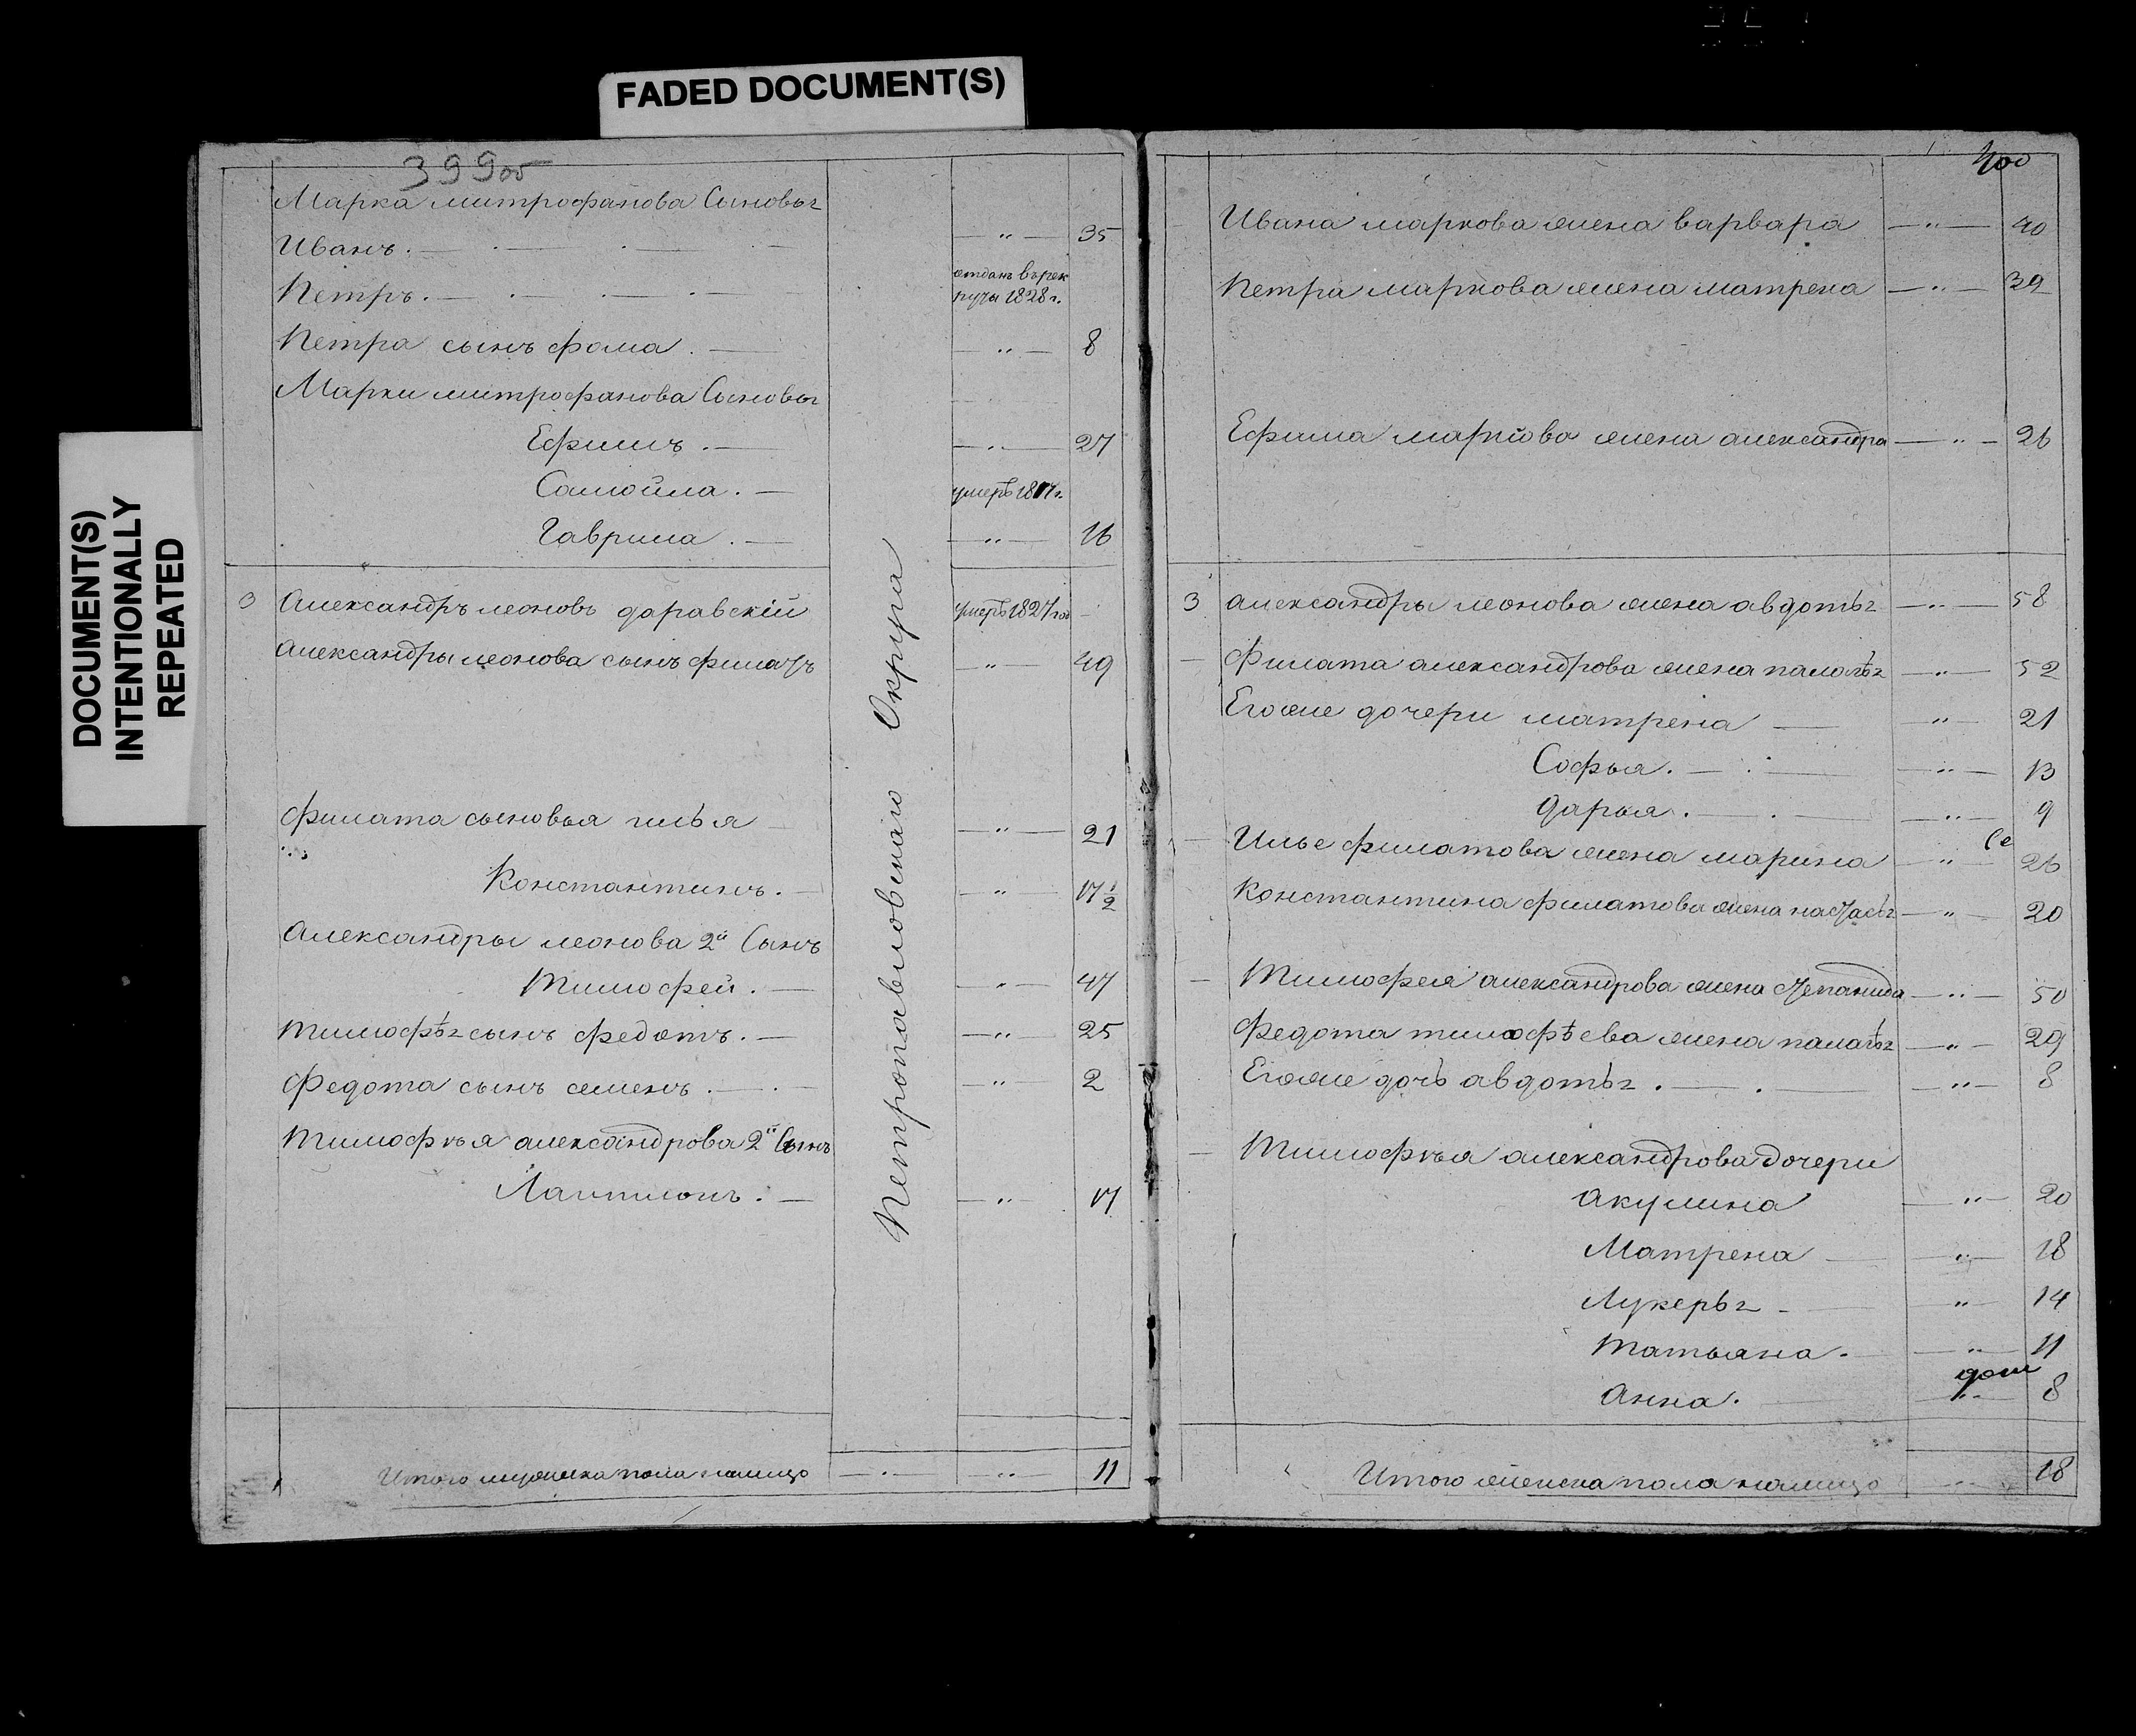 FADED DOCUMENT(S)
DOCUMENT(S)
INTENTIONALLY
REPEATED
399об
Марка митрофанова Сыновья
Иванъ. — " — 35
Петръ. отданъ въ рек
руты 1828 г.
Петра сынъ фома. — " — 8
Марки митрофанова Сыновья
Ефимъ. — " — 27
Самойла. — умеръ 18 г.
Гаврила. — " — 16
3 Александръ леоновъ даравскій умеръ 1827 год
Александры леонова сынъ филатъ " — 49
филата сыновья илья — " — 21
Константинъ. — " — 17 1/2
Александры леонова 2й Сынъ
Тимофей. — " — 47
Тимофѣя сынъ федотъ. — " — 25
Федота сынъ семенъ. — " — 2
Тимофѣя александрова 2й Сынъ
Лантионъ. — " — 17
Петропавловскаго Округа
Итого мужеска пола налицо — " — " — 11
400
Ивана маркова жена варвара — " — 40
Петра маркова жена матрена — " — 39
Ефима маркова жена александра — " — 26
3 александры леонова жена авдотья — " — 58
— Филата александрова жена палагѣя — " — 52
Егоже дочери матрена — " — 21
Софья. — " — 13
дарья. — " — 9
— Илье филатова жена марина — " — 26
Константина филатова жена настасья — " — 20
— Тимофея александрова жена степанида — " — 50
федота тимофѣева жена палагѣя — " — 29
Егоже дочь авдотья. — " — 8
— Тимофѣя александрова дочери
акулина — " — 20
Матрена — " — 18
Лукерья — " — 14
татьяна. — " — 11
Анна. — " — 8
Итого женска пола налицо — 18